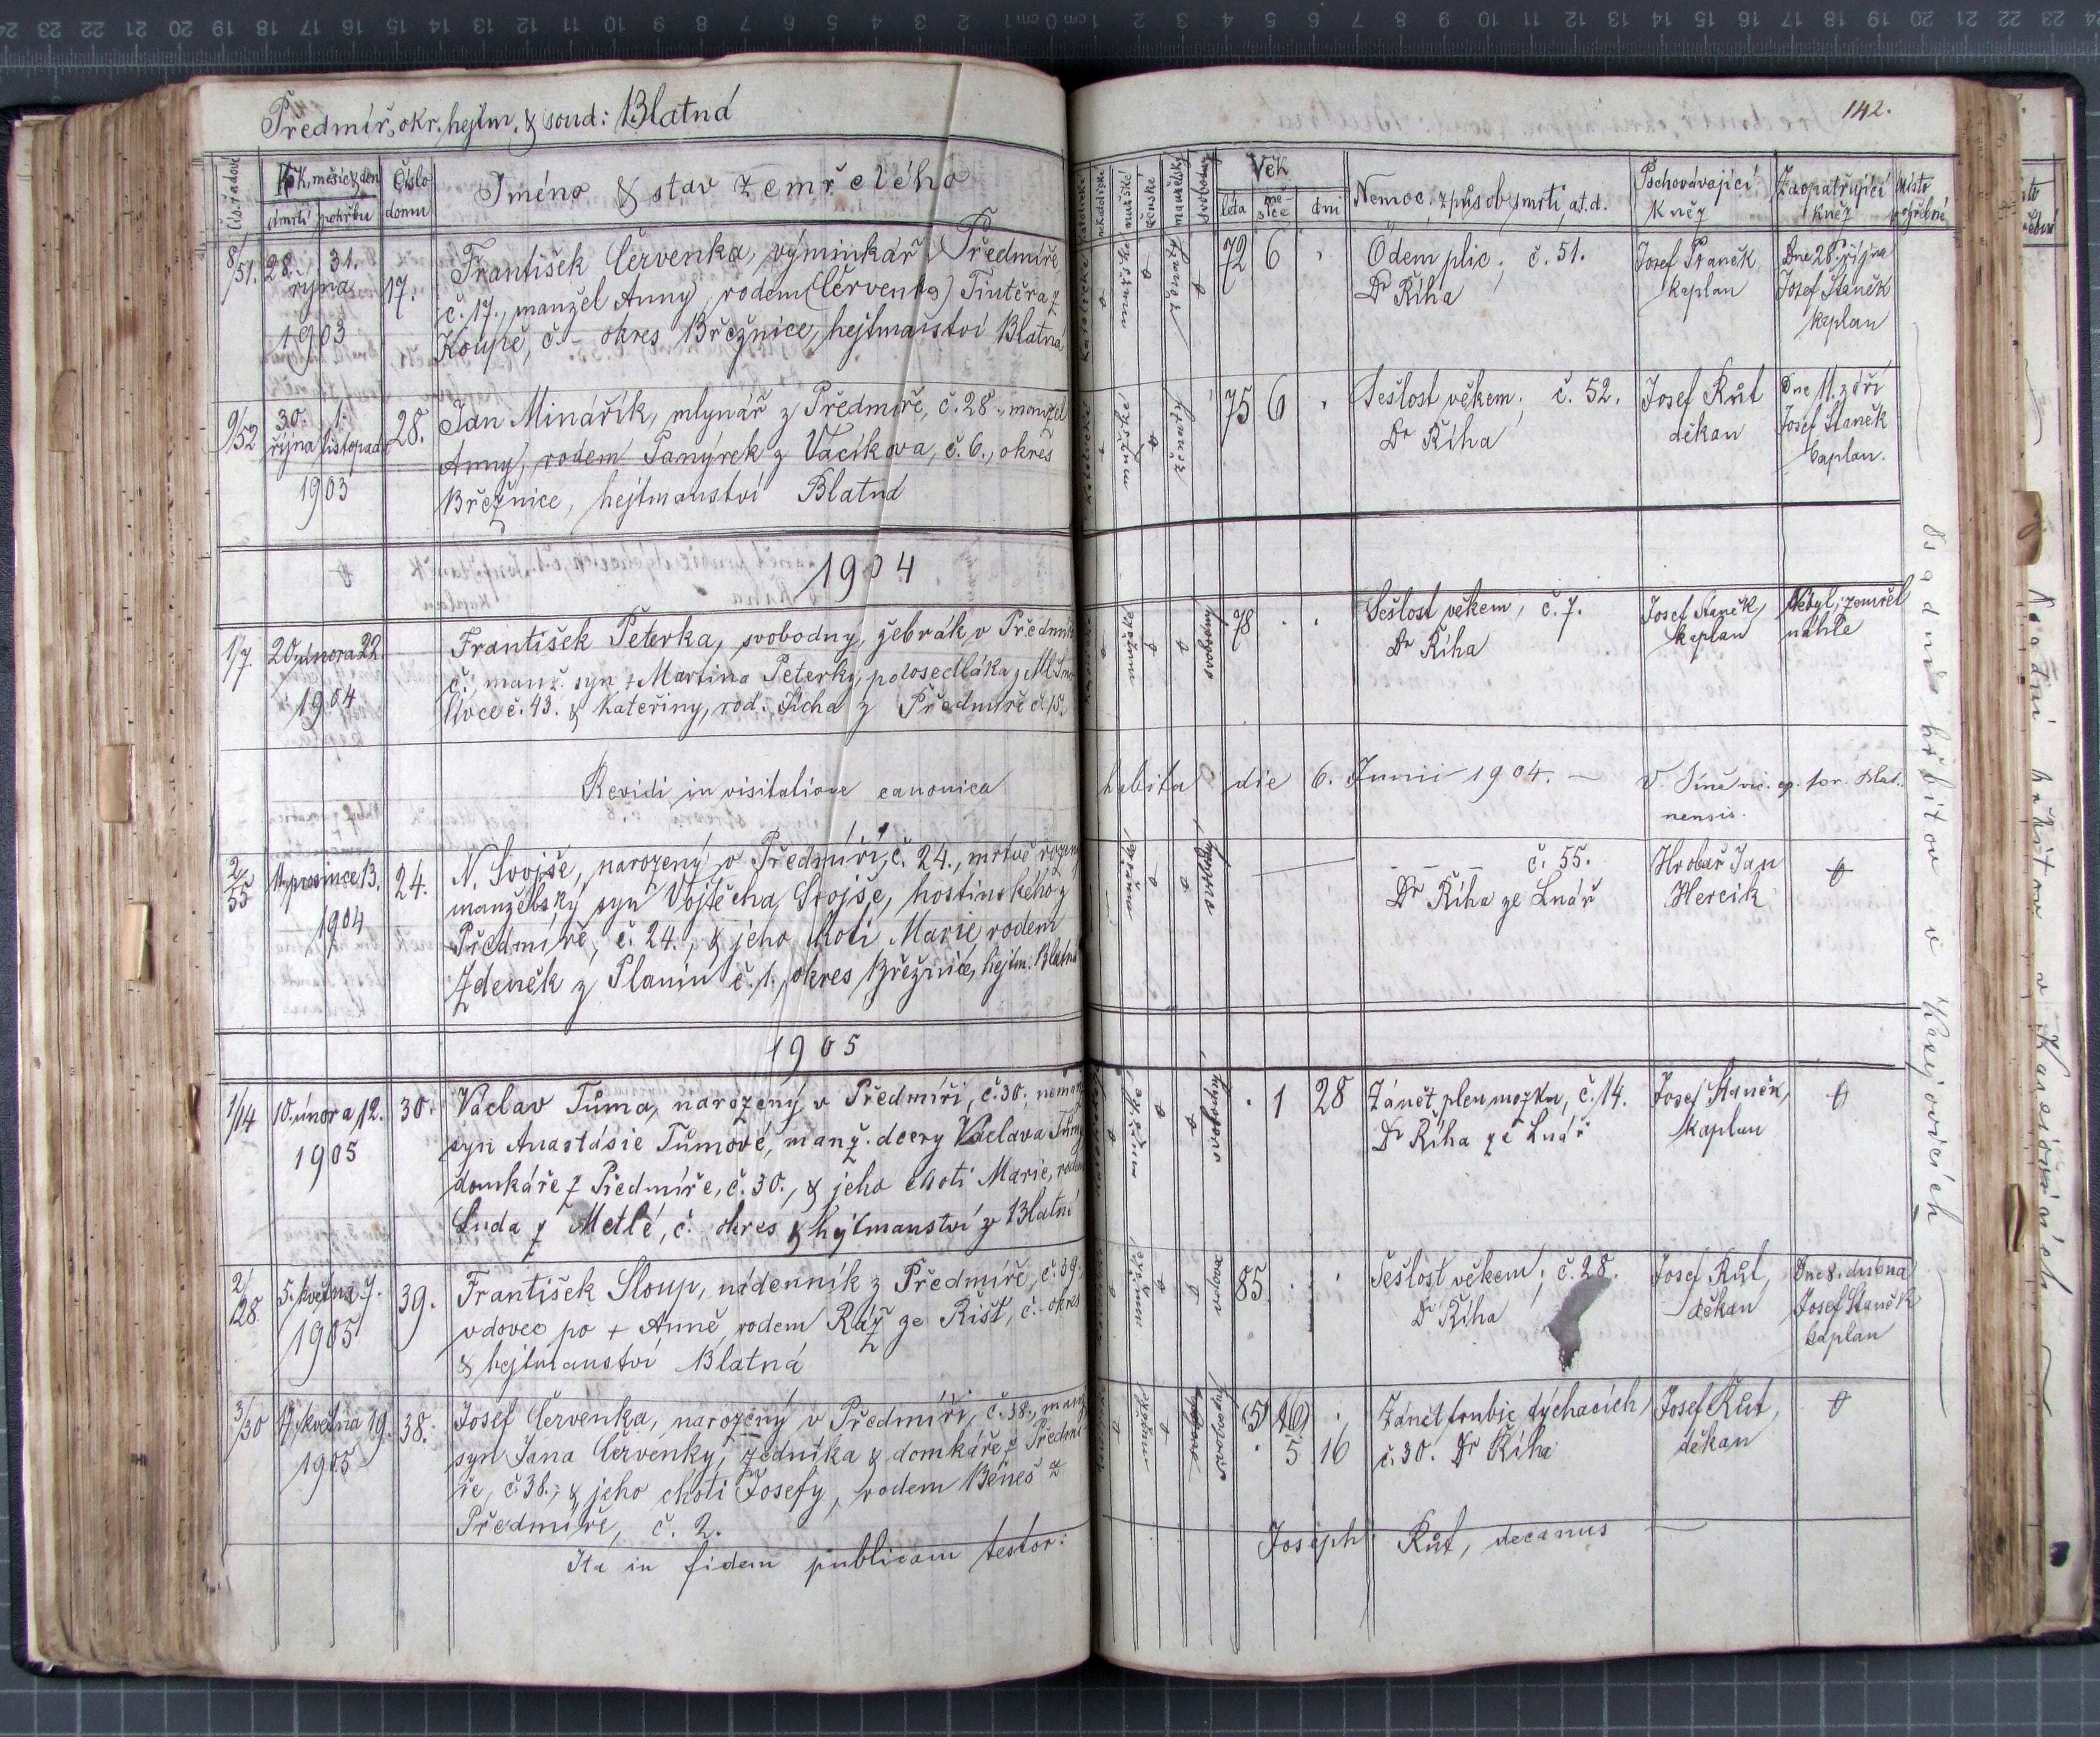 Předmíř, okr. hejtm. & soud: Blatná
142.
Čís. řadové
Rok, měsíc & den
úmrtí pohřbu
Číslo domu
Jméno & stav zemřelého
katolické
nekatolické
mužské
ženské
manželský
svobodný
Věk
léta měsíce dní
Nemoc, způsob smrti, a.t.d.
Pochovávající Kněz
Zaopatřující kněz
Místo pohřební
8/51. 28. 31.
října
1903
17.
František Červenka, výminkář z Předmíře
č. 17., manžel Anny, rodem (Červenka) Tintěra z
Koupě, č. - okres Březnice, hejtmanství Blatná
72 6 .
Ödem plic; č. 51.
Dr Říha
Josef Staněk
kaplan
Dne 28. října
Josef Staněk
kaplan
9/52 30. 1.
října listopadu
1903
28.
Jan Minářík, mlynář z Předmíře, č. 28., manžel
Anny, rodem Panýrek z Vacíkova, č. 6., okres
Březnice, hejtmanství Blatná
75 6 .
Sešlost věkem; č. 52.
Dr Říha
Josef Růt
děkan
Dne 11. září
Josef Staněk
kaplan.
1904
1/7. 20. února 22.
1904
František Peterka, svobodný, žebrák, v Předmíři
č., manž. syn + Martina Peterky, polosedláka z Ml. Smo
livce č. 43. & Kateřiny, rod. Šicha z Předmíře č. 15.
78 . .
Sešlost věkem, č. 7.
Dr Říha
Josef Staněk,
kaplan
Nebyl; zemřel
náhle
Revidi in visitatione canonica habita die 6. Junii 1904. —
vic. ep. for. Blat.
nensis.
2/55 11. prosince 13.
1904
24.
N. Svojše, narozený v Předmíři, č. 24., mrtvě rozený
manželský syn Vojtěcha Svojše, hostinského z
Předmíře, č. 24., & jeho choti Marie, rodem
Zdeněk z Planin č. 1., okres Březnice, hejtm. Blatná
- - - č. 55.
Dr Říha ze Lnář
Hrobař Jan
Hercik
1905
1/14 10. února 12.
1905
30.
Václav Tůma, narozený v Předmíři, č. 30., nemanž.
syn Anastásie Tůmové, manž. dcery Václava Tůmy
domkáře z Předmíře, č. 30., & jeho choti Marie, rodem
Luda z Metlé, č. okres & hejtmanství z Blatné
. 1 28
Zánět plen mozku, č. 14.
Dr Říha ze Lnář
Josef Staněk,
kaplan
2/28 5. května 7.
1905
39.
František Sloup, nádenník z Předmíře, č. 39.,
vdovec po + Anně, rodem Ráž ze Řišť, č. - okres
& hejtmanství Blatná
85 . .
Sešlost věkem; č. 28.
Dr Říha
Josef Růt,
děkan
Dne 8. dubna
Josef Staněk
kaplan
3/30 17. května 19.
1905
38.
Josef Červenka, narozený v Předmíři, č. 38., manž.
syn Jana Červenky, zedníka & domkáře z Předmí
ře, č. 38., & jeho choti Josefy, rodem Beneš z
Předmíře, č. 2.
(5) (16) .
. 5 16
Zánět trubic dýchacích,
č. 30. Dr Říha
Josef Růt,
děkan
Ita in fidem publicam testor: Joseph Růt, decanus
Osadní hřbitov v Kasejovicích